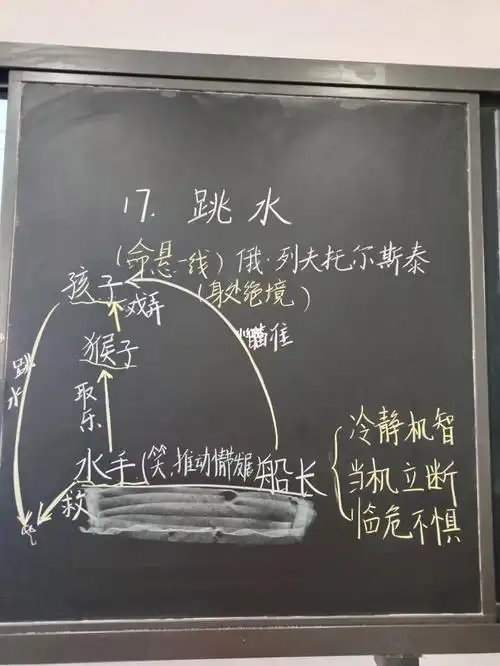 17. 跳水
(命悬一线) 俄·列夫托尔斯泰
孩子 (身处绝境)
戏弄
瞄准
猴子
跳水
取乐
冷静机智
水手(笑,推动情节发展) 船长
当机立断
救
临危不惧